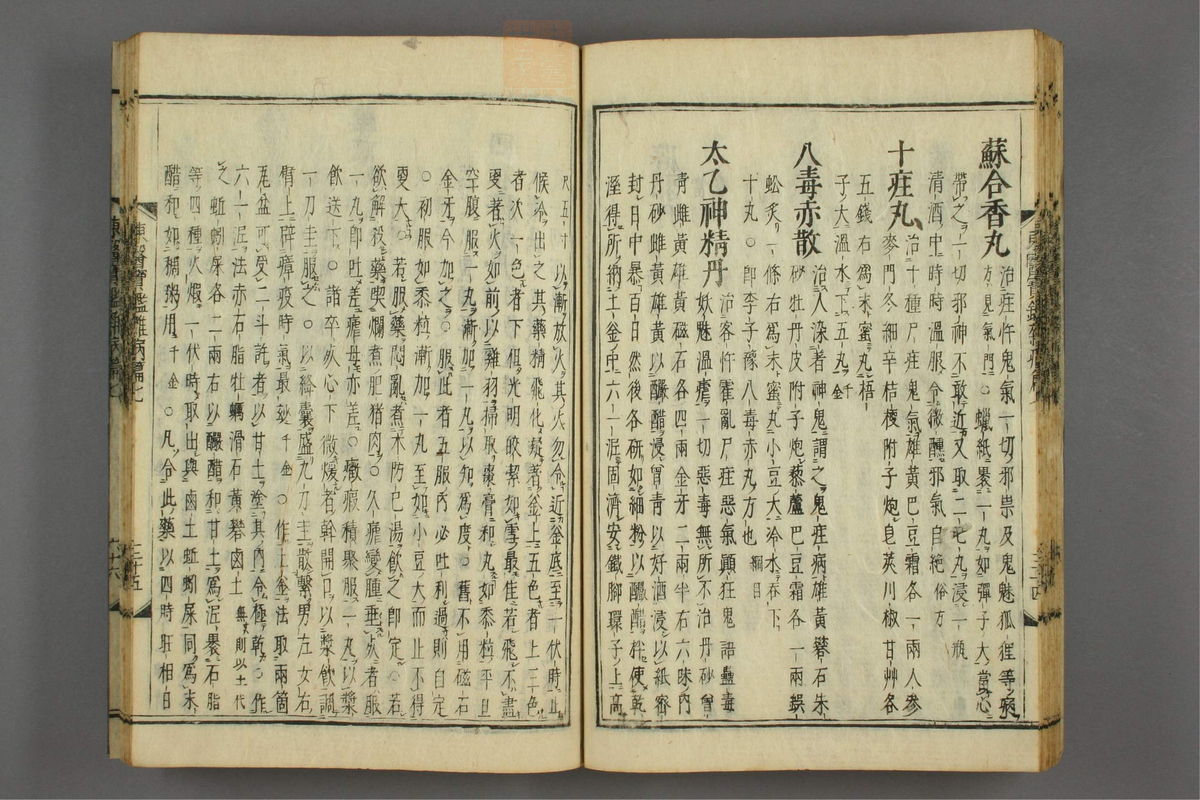 蘇合香丸 治疰忤鬼氣一切邪祟及鬼魅狐狸等疾
方見氣門○蠟紙裹一丸如彈子大當心
帶之一切邪神不敢近又取二七丸浸一瓶
清酒中時時溫服令微醺邪氣自絶俗方
十疰丸 治十種尸疰鬼氣雄黃巴豆霜各一兩人參
麥門冬細辛桔梗附子炮皂莢川椒甘艸各
五錢右爲末蜜丸梧
子大溫水下五丸千金
八毒赤散 治人染者神鬼謂之鬼疰病雄黃礬石朱
砂牡丹皮附子炮藜蘆巴豆霜各一兩蜈
蚣炙一條右爲末蜜丸小豆大冷水吞下
十丸○卽李子豫八毒赤丸方也綱目
太乙神精丹 治客忤霍亂尸疰惡氣顚狂鬼語蠱毒
妖魅溫瘧一切惡毒無所不治丹砂曾
靑雌黃雄黃磁石各四兩金牙二兩半右六味內
丹砂雌黃雄黃以釅醋浸曾靑以好酒浸以紙密
封日中暴百日然後各研如細粉以釅醋拌使乾
溼得所納土釜中六一泥固濟安鐵腳環子上高
尺五寸以漸放火其火勿令近釜底至一伏時止
候冷出之其藥精飛化凝著釜上五色者上三色
者次一色者下但光明皎潔如雪最佳若飛不盡
更著火如前以雞羽掃取棗膏和丸如黍粒平旦
空腹服一丸漸加一丸以知爲度○舊不用磁石
金牙今加之○服此者五服內必吐利過則自定
○初服如黍粒漸加一丸至如小豆大而止不得
更大○若服藥悶亂煮木防己湯飮之卽定○若
欲解殺藥喫爛煮肥猪肉○久瘧變腫垂死者服
一丸卽吐差瘧母亦差○癥瘕積聚服一丸以漿
飮送下○諸卒死心下微煖者幹開口以漿飮調
一刀圭服之○以絳囊盛九刀圭散繫男左女右
臂上辟瘴疫時氣最妙千金○作土釜法取兩箇
瓦盆可受二斗許者以甘土塗其內令極乾○作
六一泥法赤石脂牡蠣滑石黃礬鹵土無則以土代
之蚯蚓屎各二兩右以釅醋和甘土爲泥裹石脂
等四種火煅一伏時取出與鹵土蚯蚓屎同爲末
醋和如稠粥用千金○凡合此藥以四時旺相日